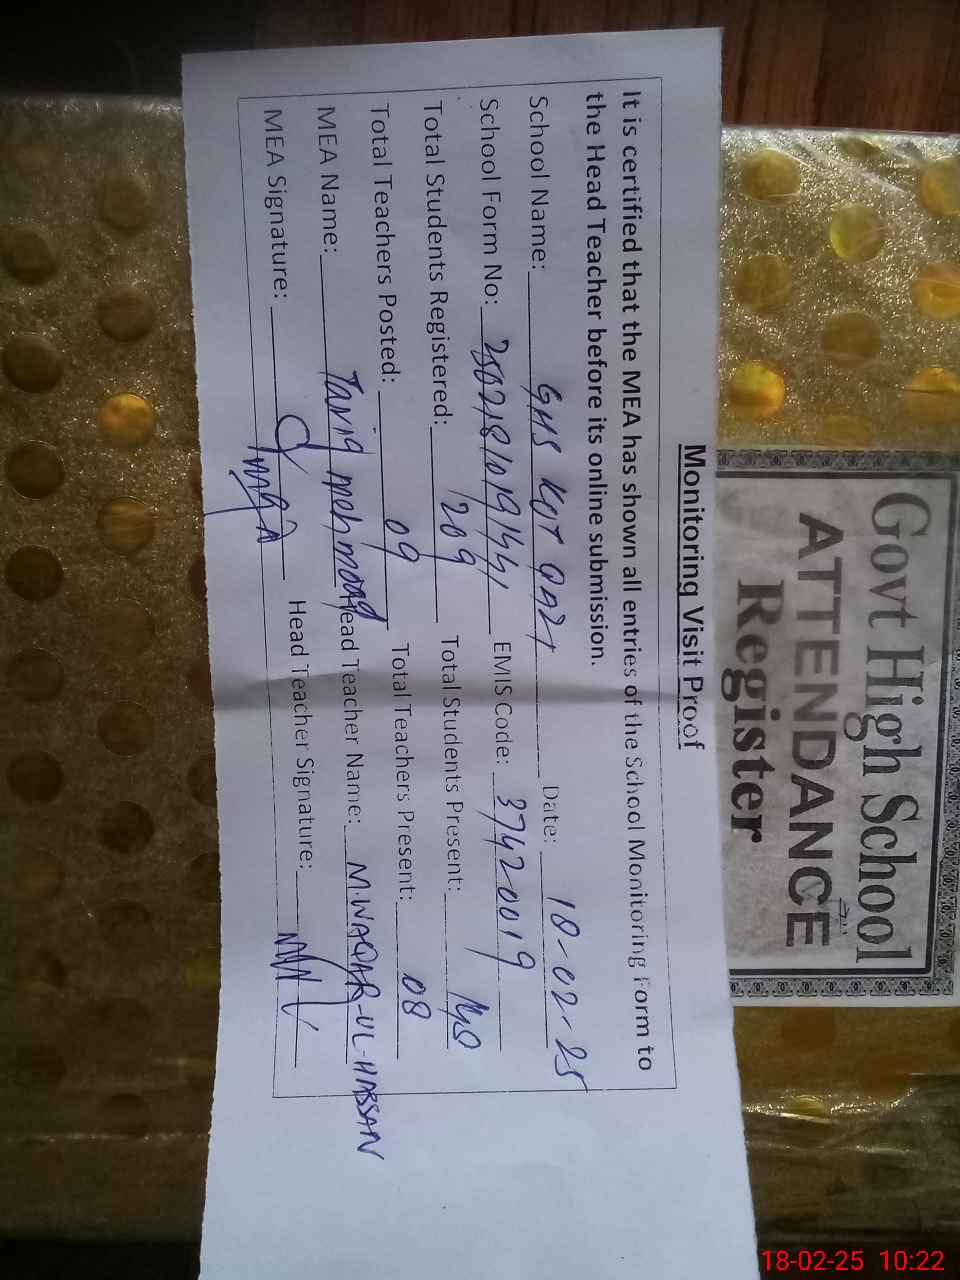 Govt High School
ATTENDANCE
Register
Monitoring Visit Proof
It is certified that the MEA has shown all entries of the School Monitoring Form to
the Head Teacher before its online submission.
School Name: GHS KOT QAZI Date: 18-02-25
School Form No: EMIS Code: 37420019
Total Students Registered: 209 Total Students Present:
Total Teachers Posted: 09 Total Teachers Present: 08
MEA Name: Tariq mehmood Head Teacher Name: M.WAQAR-UL-HASSAN
MEA Signature: Head Teacher Signature:
18-02-25 10:22